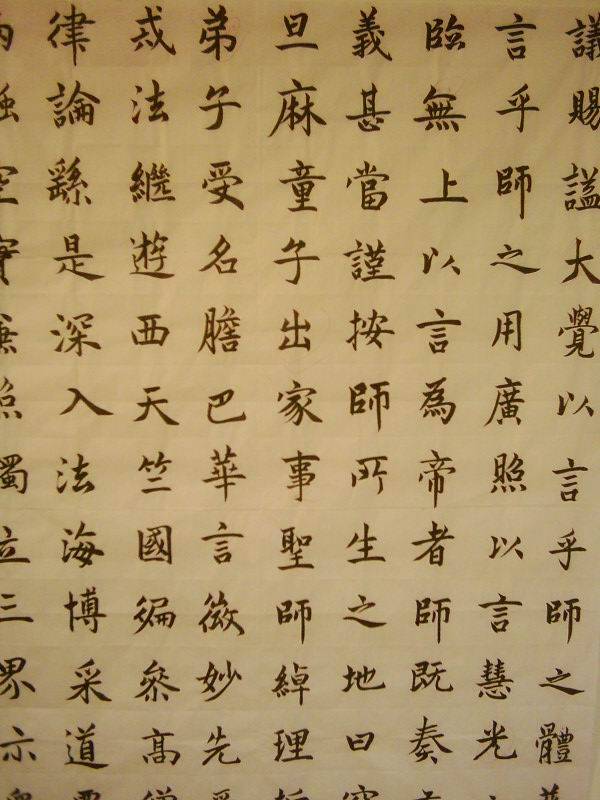 議賜謚大覺以言乎師之體
言乎師之用廣照以言慧光
臨無上以言為帝者師既奏
義甚當謹按師所生之地曰
旦麻童子出家事聖師綽理
弟子受名膽巴華言微妙先
戒法繼遊西天竺國徧叅高
律論繇是深入法海博采道
空寶兼照獨立三界示